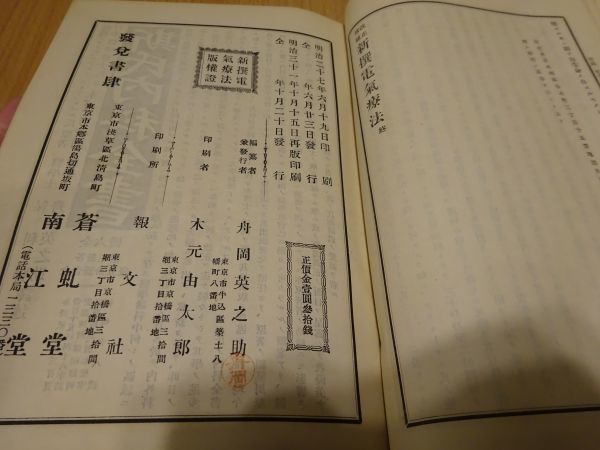 新撰電氣療法 終
明治二十七年六月十九日印刷
仝 年六月廿三日發行
明治三十一年十月十五日再版印刷
仝 年十月二十日發行
正價金壹圓叁拾錢
新撰電
氣療法
版權證
編纂者
兼發行者
舟岡英之助
東京市牛込區築土八
幡町八番地
印刷者
木元由太郎
東京市京橋區三十間
堀三丁目拾番地
印刷所
報文社
東京市京橋區三十間
堀三丁目拾番地
發兌書肆
東京市淺草區北淸島町
蒼虬堂
東京市本郷區湯島切通坂町
南江堂
(電話本局一二三〇